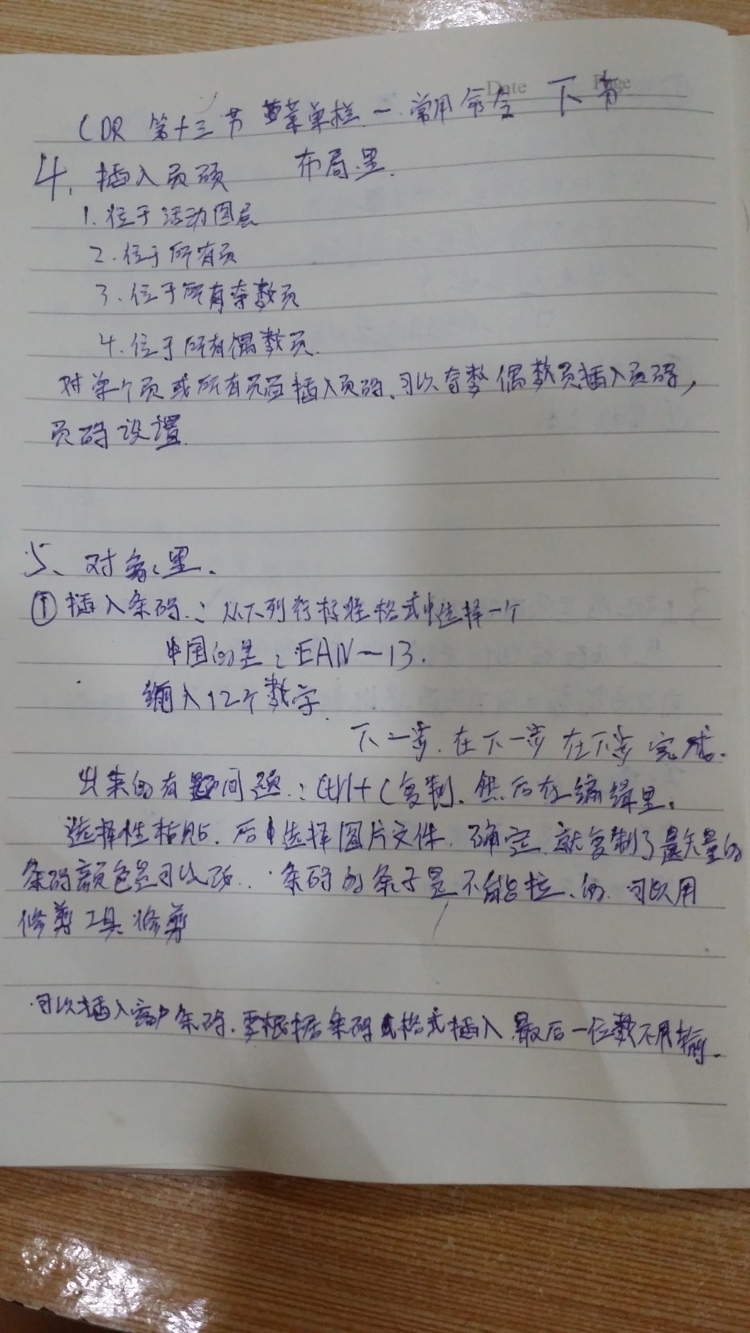 Date Page
CDR 第十三节 菜单栏 一 常用命令 下节
4、插入页码 布局里.
1.位于活动图层
2.位于所有页
3.位于所有奇数页
4.位于所有偶数页.
对单个页或所有页面插入页码、可以奇数偶数页插入页码，
页码设置.
5、对象里.
① 插入条码：从下列行标准格式中选择一个
中国的是：EAN-13.
输入12个数字
下一步.在下一步 在下步 完成.
出来的有问题：Ctrl+C复制.然后在编缉里.
选择性粘贴.后选择图片文件.确定.就复制了是矢量的
条码颜色是可以改..条码的条子是不能拉.的.可以用
修剪工具修剪
可以插入客户条码.要根据条码格式插入 最后一位数不用输.